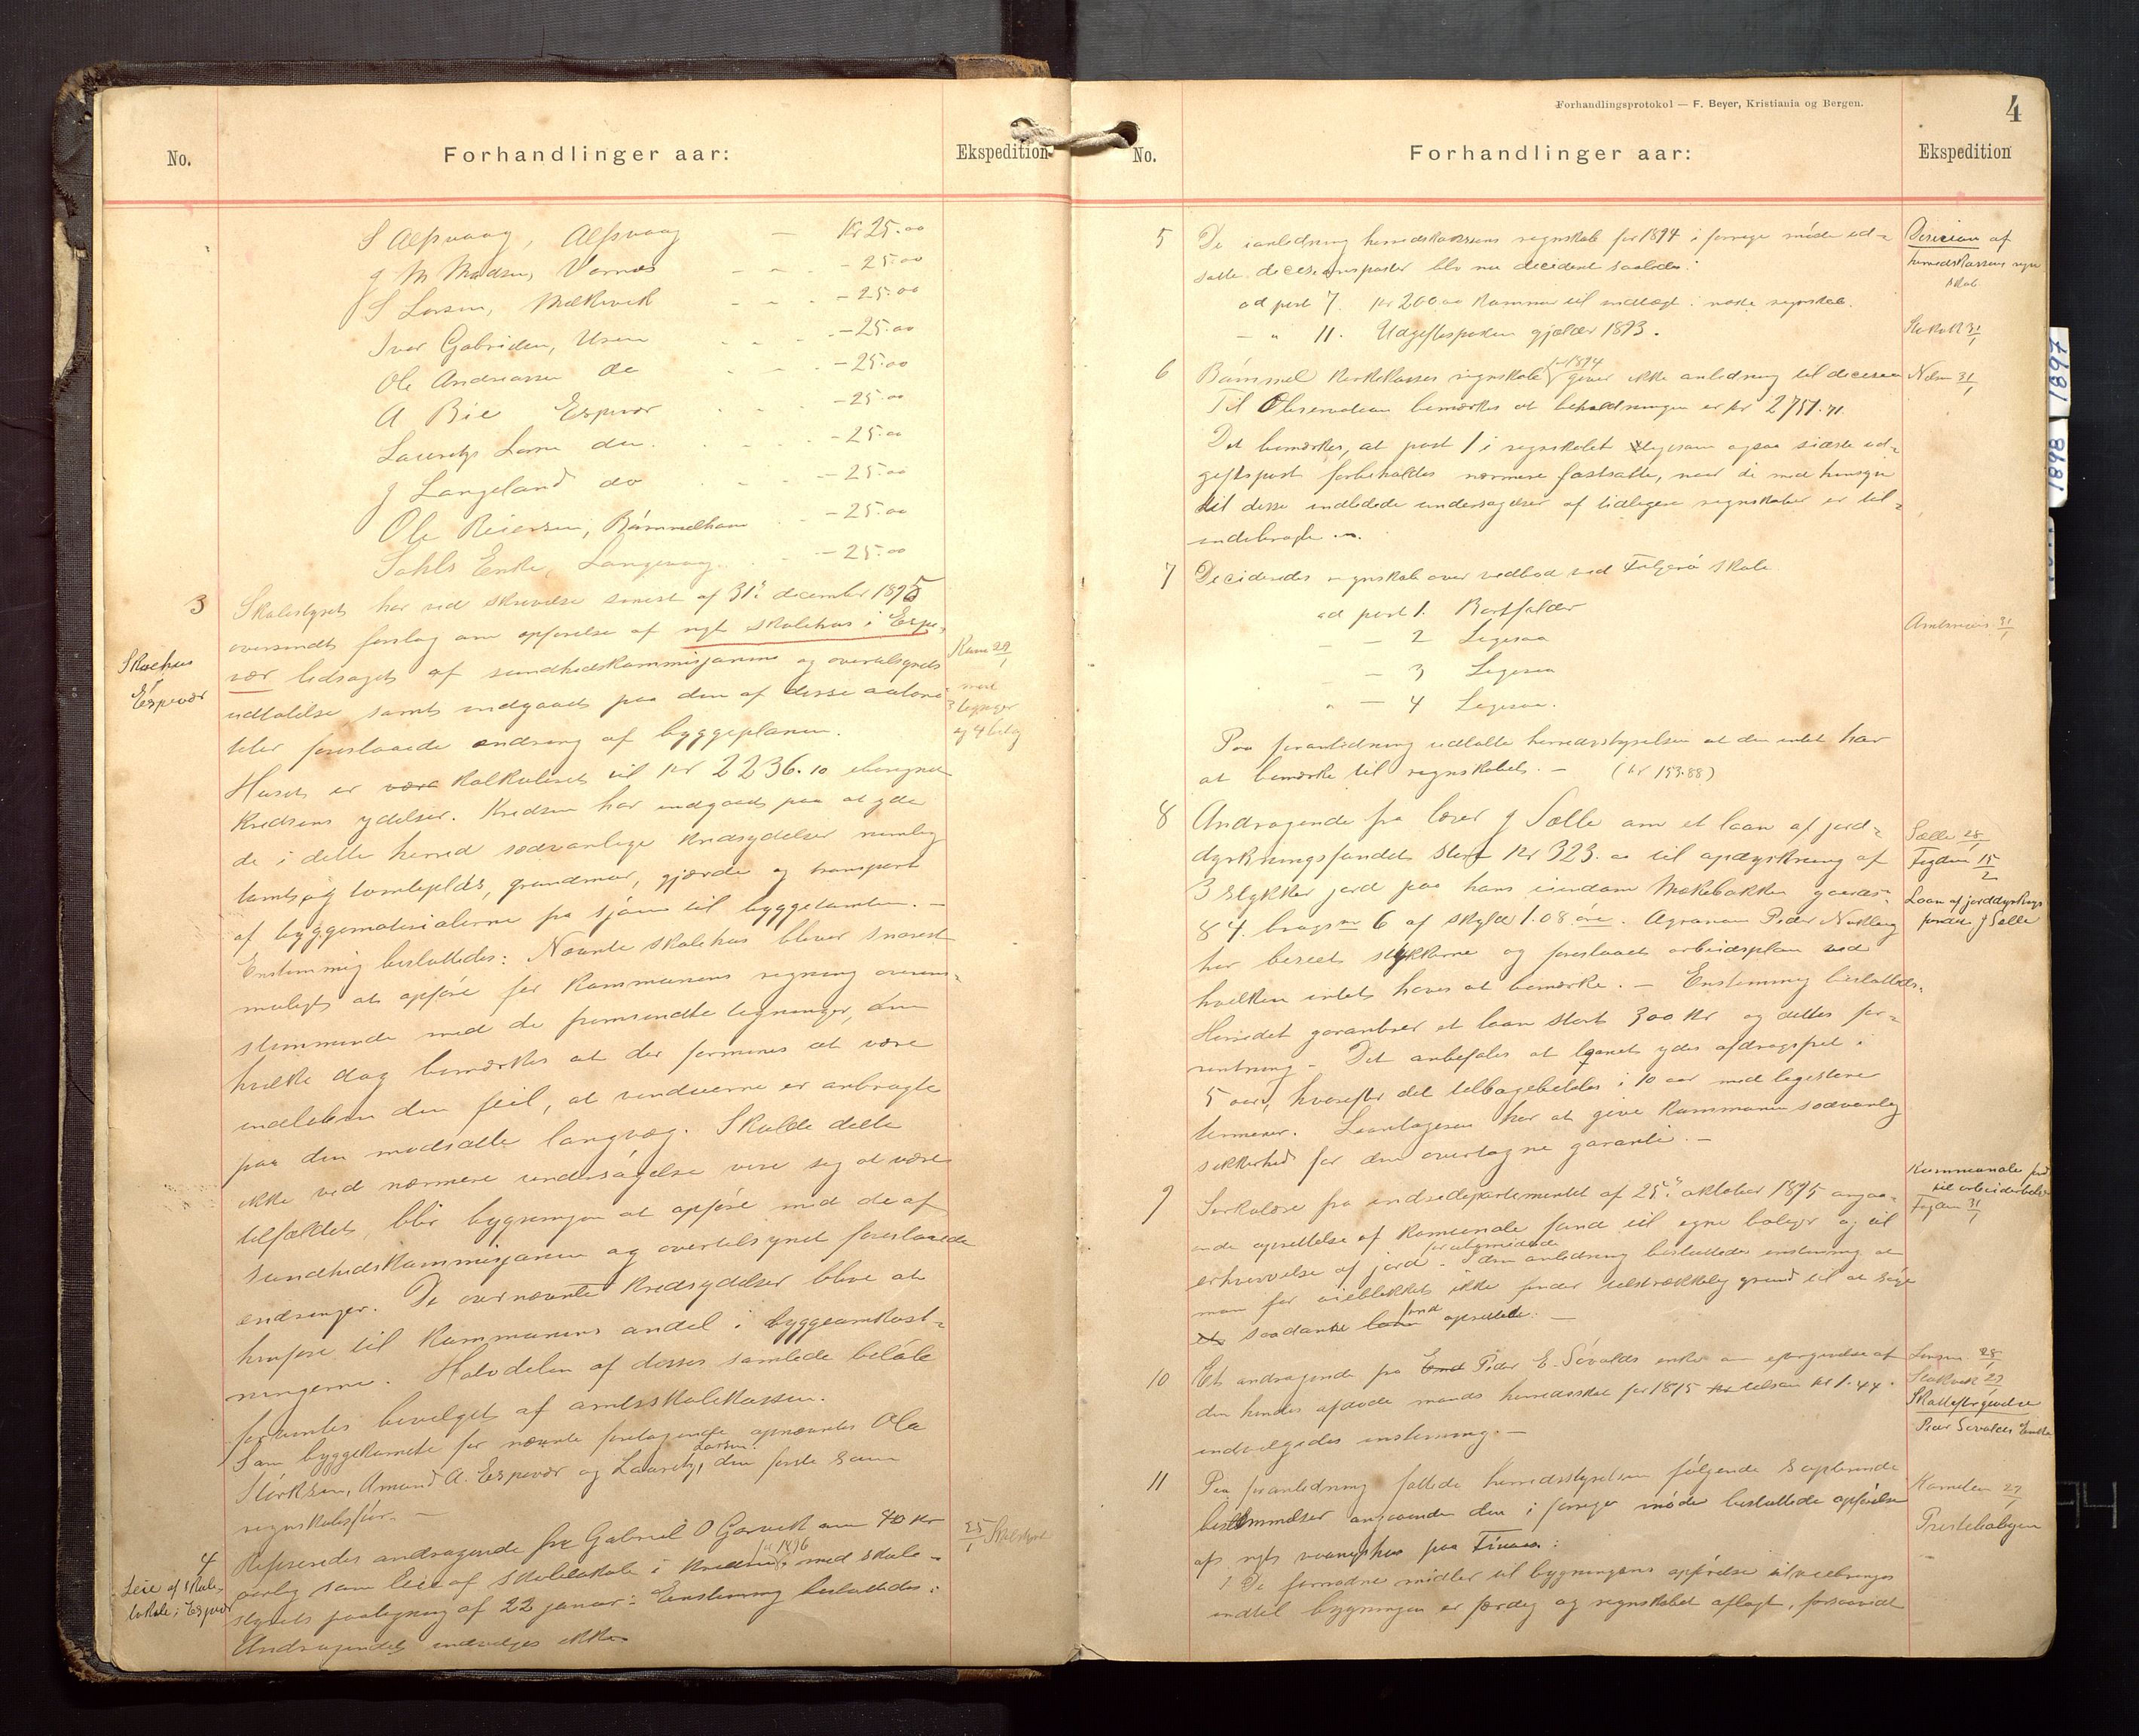 No.
Forhandlinger aar:
Ekspedition
S Alfsvaag, Alfsvaag — Kr 25.00
J M Madsen, Vornes - - - 25.00
S Larsen, Mælkevik - - - 25.00
Ivar Gabrielsen, Uren - - - 25.00
Ole Andreassen do - - 25.00
A Bie Espevær - - - 25.00
Lauritz Larsen do. - - - 25.00
J Langeland do - - - 25.00
Ole Reiersen, Bømmelhavn - - 25.00
Sahls Enke, Langevaag - - 25.00
3 Skolestyret har ved skrivelse senest af 31te december 1895
oversendt forslag om opførelse af nyt skolehus i Espe-
vær ledsaget af sundhedskommisjonens og overtilsynets
udtalelse samt indgaaet paa den af disse autori-
teter foreslaaede endring af byggeplanen.
Skolehus
i
Espevær
Kom 29/1
med
3 tegninger
og 4 bilag
Huset er være kalkuleret til kr 2236.10 iberegnet
kredsens ydelser. Kredsen har indgaaet paa at yde
de i dette herred sædvanlige kredsydelser nemlig
tomt og tomteplads, grundmur, gjærde og transport
af byggematerialerne fra sjøen til byggetomten. —
Enstemmig besluttedes: Nævnte skolehus bliver snarest
muligt at opføre for kommunens regning overens-
stemmende med de fremsendte tegninger, om
hvilke dog bemærkes at der formenes at være
indløben den feil, at vinduerne er anbragte
paa den modsatte langvæg. Skulde dette
ikke ved nærmere undersøgelse vise sig at være
tilfældet, blir bygningen at opføre med de af
sundhedskommisjonen og overtilsynet foreslaaede
endringer. De overnævnte kredsydelser blive at
henføre til kommunens andel i byggeomkost-
ningerne. Halvdelen af disses samlede beløb
forventes bevilget af amtsskolekassen.
Som byggekomite for nævnte foretagende opnævntes Ole
Størksen, Amund A. Espevær og Lauritz Larsen, den første som
regnskabsfør. —
4 Refereredes andragende fra Gabriel O Garvik om 40 kr
aarlig som leie af skolelokale i kredsen for 1896 med skole-
styrets paategning af 22 januar: Enstemmig besluttedes:
Andragendet indvilges ikke
Leie af skole-
lokale i Espevær
25/1
Forhandlingsprotokol — F. Beyer, Kristiania og Bergen.
4
No.
Forhandlinger aar:
Ekspedition
5 De i anledning herredskassens regnskab for 1894 i forrige møde ud-
satte decisionsposter blev nu decideret saaledes:
ad post 7. kr 200.00 kommer til indtægt i næste regnskab.
— " 11. Udgiftsposten gjælder 1893.
Decision af
herredskassens regn
skab.
31/1
6 Bømmel kirkekasses regnskab for 1894 giver ikke anledning til decision
Til Observation bemærkes at beholdningen er kr 2751.71.
Det bemærkes, at post 1 i regnskabet ligesom ogsaa sidste ud-
giftspost forbeholdes nærmere fastsatte, naar de med hensyn
til disse indledede undersøgelser af tidligere regnskaber er til-
endebragte. —
31/1
7 Decideredes regnskab over vedbod ved Følgerø skole
ad post 1. Bortfalder
— 2 Ligesaa
— 3 Ligesaa
" — 4 Ligesaa.
31/1
Paa foranledning udtalte herredsstyrelsen at den intet har
at bemærke til regnskabet. — (kr 153.88)
8 Andragende fra lærer J Sælle om et laan af jord-
dyrkningsfondet stort kr 323.00 til opdyrkning af
3 stykker jord paa hans eiendom Mækebakken gaards-
84. brugsnr 6 af skyld 1.08 øre. Agronom Peder Nordberg
har beseet stykkerne og foreslaaet arbeidsplan ved
hvilken intet haves at bemærke. — Enstemmig besluttedes:
Herredet garanterer et laan stort 300 kr og dettes for-
rentning. Det anbefales at laanet ydes afdragsfrit i
5 aar, hvorefter det tilbagebetales i 10 aar med ligestore
terminer. Laantageren har at give kommunen sædvanlig
sikkerhed for den overtagne garanti. —
Sælle 28/1
Fogden 15/2
Laan af jorddyrknings
fondet J Sælle
9 Cirkulære fra indredepartementet af 25de oktober 1895 angaa-
ende oprettelse af komunale fond til egne boliger og til
erhvervelse af jord for ubemidlede. I den anledning besluttedes enstemmig at
man for øieblikket ikke finder tilstrækkelig grund til at søge
et saadant laan fond oprettet. —
Kommunale fond
til arbeiderboliger
Fogden 31/1
10 Et andragende fra Enk Peder E. Søvolds enke om eftergivelse af
den hendes afdøde mands herredsskat for 1895 kr tilsam kr 1.44.
indvilgedes enstemmig. —
28/1
29/1
Skatteeftergivelse
Peder Søvolds Enke
11 Paa foranledning fattede herredsstyrelsen følgende suplerende
bestemmelser angaaende den i forrige møde besluttede opførelse
af nyt vaaningshus paa Finaas:
1 De fornødne midler til bygningens opførelse tilveiebringes
indtil bygningen er færdig og regnskabet aflagt, forsaavidt
Komiteen 27/1
Prestebolig
1897
1898